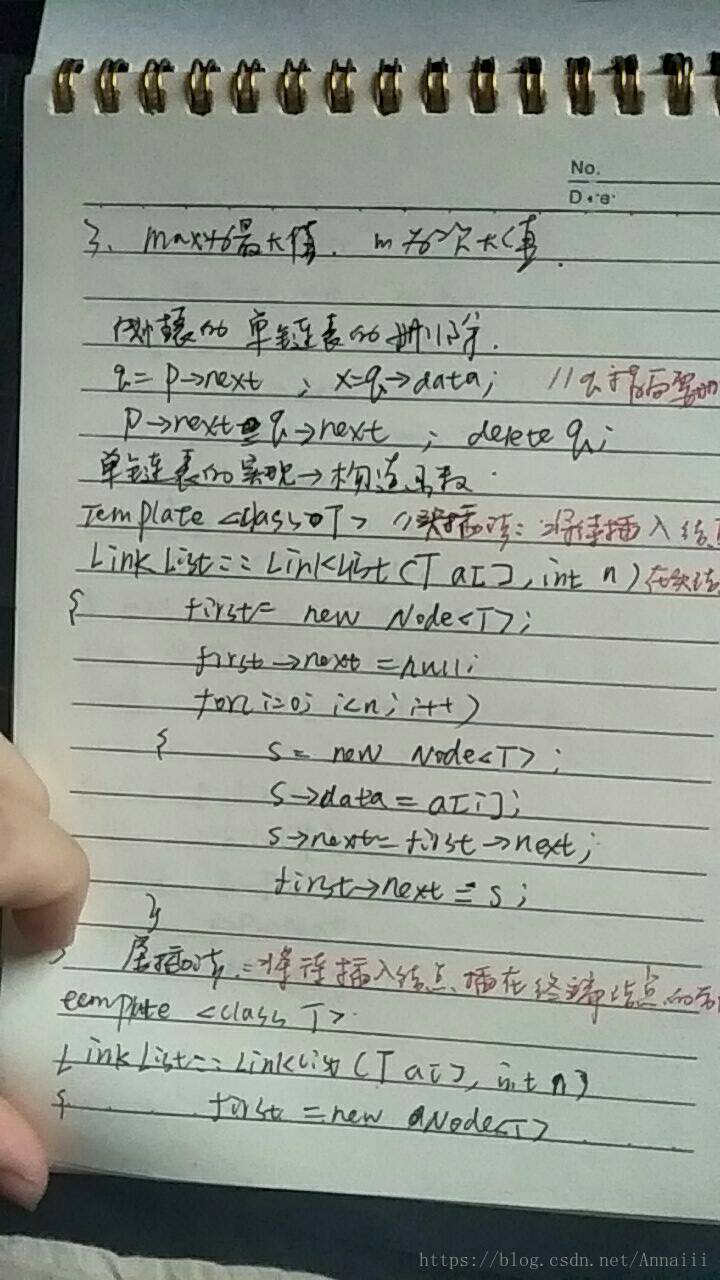 No.
Date
3、max为最大值. m为次大值.
单链表的删除.
q = p→next ; x=q→data; //q
p→next = q→next ; delete q;
单链表的实现→构造函数.
Template <class T> //头插法:将待插入结点
LinkList::LinkList(T a[], int n)在头结
{ first= new Node<T>;
first→next =null;
for(i=0; i<n; i++)
{ s = new Node<T>;
s→data = a[i];
s→next=first→next;
first→next = s;
}
} 尾插法:将待插入结点插在终端结点的
template <class T>
LinkList::LinkList (T a[], int n)
{ first = new Node<T>
https://blog.csdn.net/Annaiii